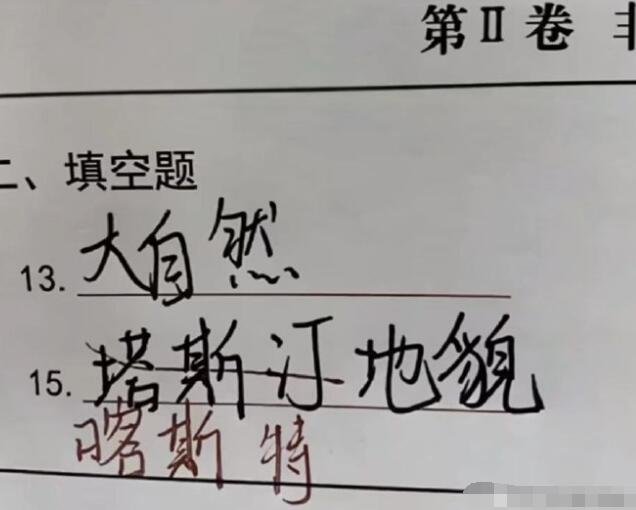 第Ⅱ卷
二、填空题
13. 大自然
15. 塔斯汀地貌
喀斯特